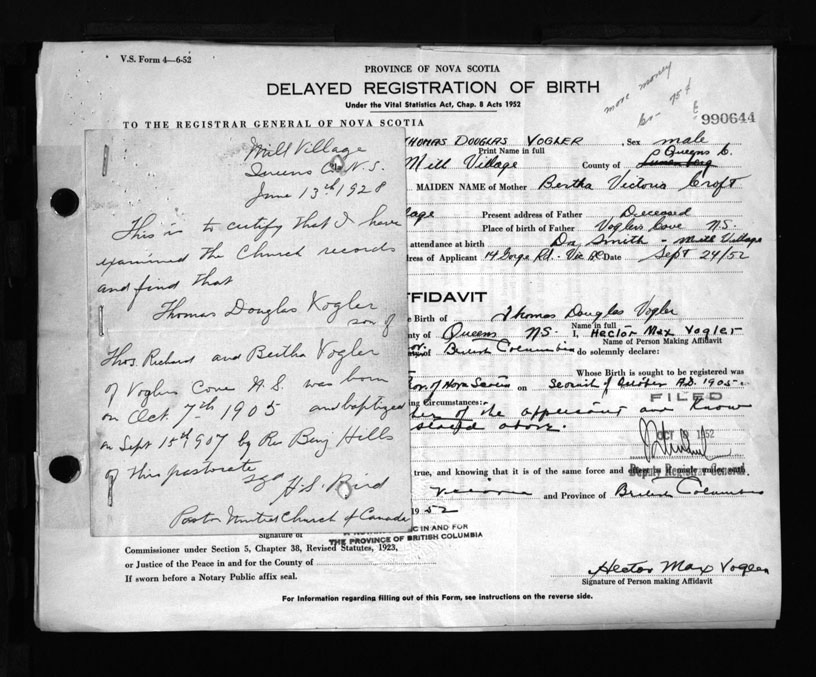 V.S. Form 4—6-52
PROVINCE OF NOVA SCOTIA
DELAYED REGISTRATION OF BIRTH
Under the Vital Statistics Act, Chap. 8 Acts 1952
more money
75¢
990644
TO THE REGISTRAR GENERAL OF NOVA SCOTIA
THOMAS DOUGLAS VOGLER , Sex male
Print Name in full
Mill Village County of Lunenberg Queens Co.
MAIDEN NAME of Mother Bertha Victoria Croft
lage Present address of Father Deceased
Place of birth of Father Voglers Cove N.S.
attendance at birth Dr. Smith - Mill Village
ress of Applicant 14 Gorge Rd. - Vic BC Date Sept 24/52
FFIDAVIT
e Birth of Thomas Douglas Vogler
Name in full
ty of Queens N.S. I, Hector Max Vogler
Name of Person Making Affidavit
of British Columbia do solemnly declare:
Whose Birth is sought to be registered was
ov. of Nova Scotia on Seventh of October A.D. 1905.
ing Circumstances:
FILED
her of the applicant and know
stated above.
OCT 1952
true, and knowing that it is of the same force and
Deputy Registrar General.
Victoria and Province of British Columbia
1952
Mill Village
Queens Co. N.S.
June 13th 1928
This is to certify that I have
examined the Church records
and find that
Thomas Douglas Vogler
son of
Thos. Richard and Bertha Vogler
of Voglers Cove N.S. was born
on Oct. 7th 1905 and baptized
on Sept 15th 1907 by Rev Benj Hills
of this pastorate
sgd H.S. Bird
Pastor United Church of Canada
Signature of
IC IN AND FOR
THE PROVINCE OF BRITISH COLUMBIA
Commissioner under Section 5, Chapter 38, Revised Statutes, 1923,
or Justice of the Peace in and for the County of
If sworn before a Notary Public affix seal.
Hector Max Vogler
Signature of Person making Affidavit
For Information regarding filling out of this Form, see instructions on the reverse side.